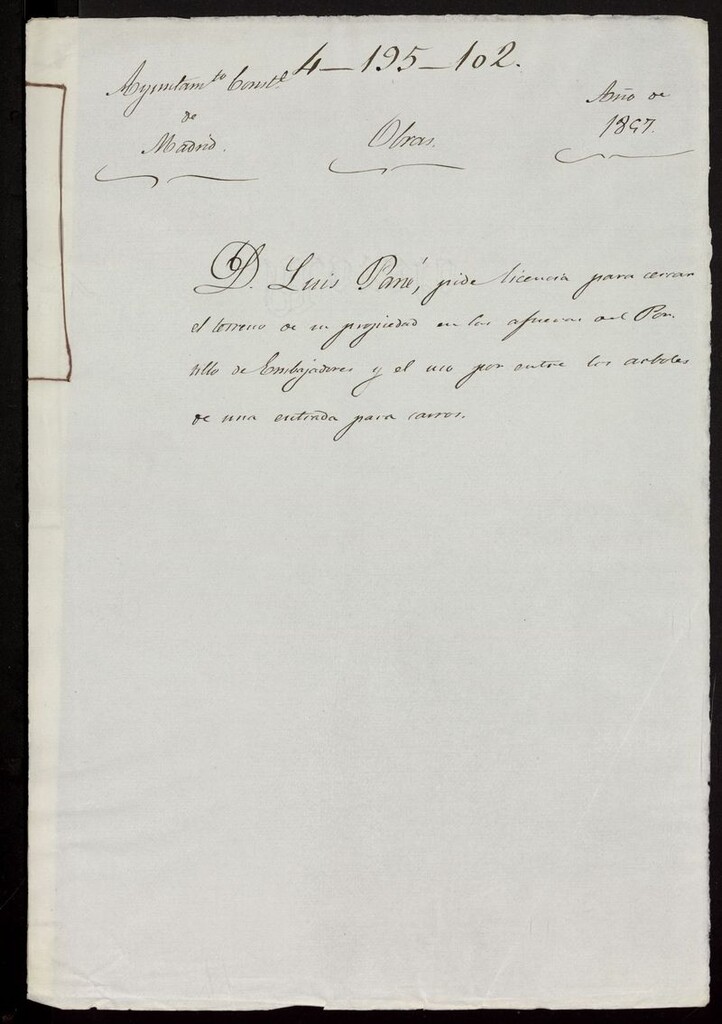 4-195-102.
Ayuntam.to Const.l
de
Madrid.
Obras.
Año de
1857.
D. Luis Pané, pide licencia para cerrar
el terreno de su propiedad en las afueras del Por-
tillo de Embajadores y el uso por entre los arboles
de una entrada para carros.